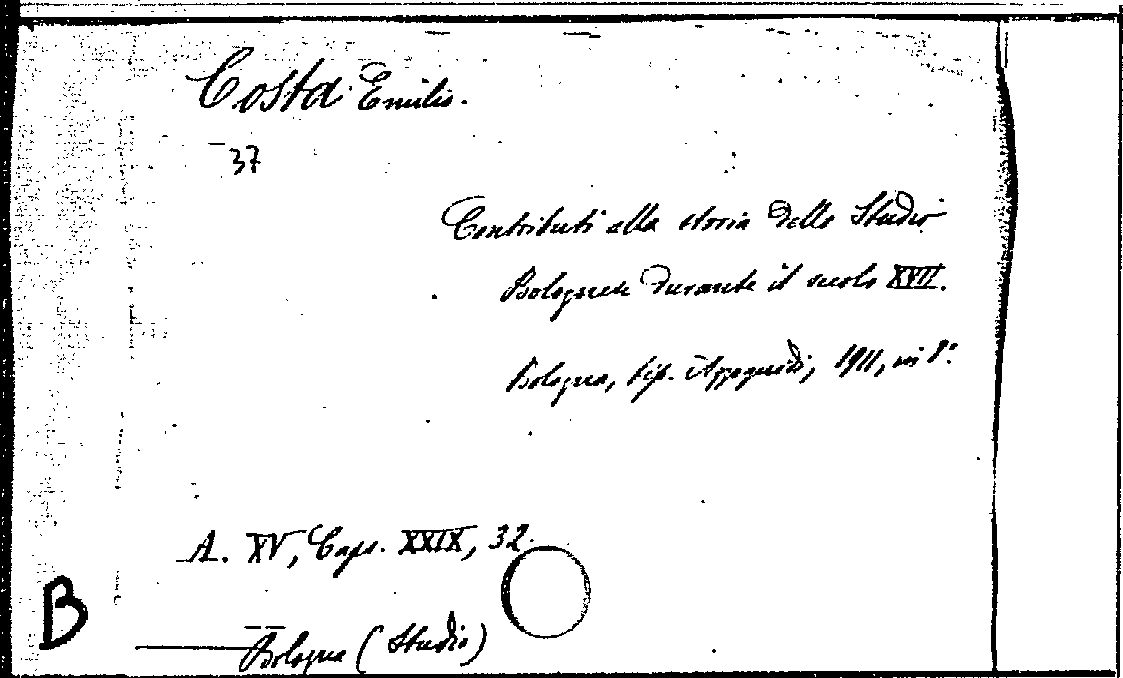 Costa Emilio.
37
Contributi alla storia dello Studio
Bolognese durante il secolo XVII.
Bologna, tip. Azzoguidi, 1911, in 8º.
A. XV, Caps. XXIX, 32.
B
Bologna (Studio)